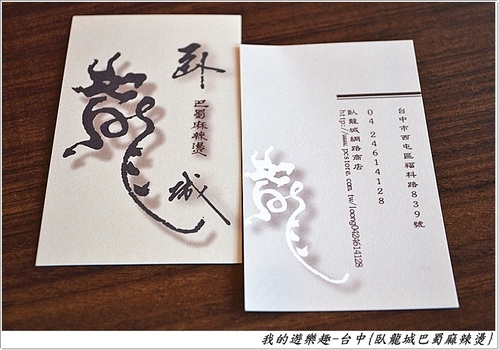 臥
龍
城
巴蜀麻辣燙
台中市西屯區福科路839號
04 24614128
臥龍城網路商店
http://www.pcstore.com.tw/loong0424614128
龍
我的遊樂趣-台中{臥龍城巴蜀麻辣燙}